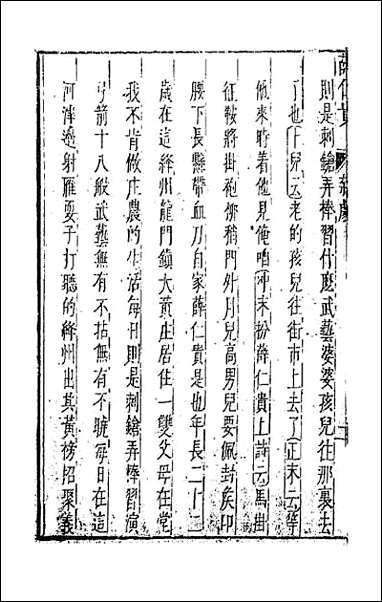 薛仁貴 雜劇
則是刺鎗弄棒習什麽武藝婆婆孩兒往那裏去
了也卜兒云老的孩兒往街市上去了正末云等
他來時着他見俺咱沖末扮薛仁貴上詩云馬掛
征鞍將掛袍柳稍門外月兒高男兒要佩封侯印
腰下長懸帶血刀自家薛仁貴是也年長二十二
歲在這絳州龍門鎮大黃庄居住一雙父母在堂
我不肯做庄農的生活每日則是刺鎗弄棒習演
弓箭十八般武藝無有不拈無有不㧱每日在這
河津邊射雁耍子打聽的絳州出其黃榜招聚義